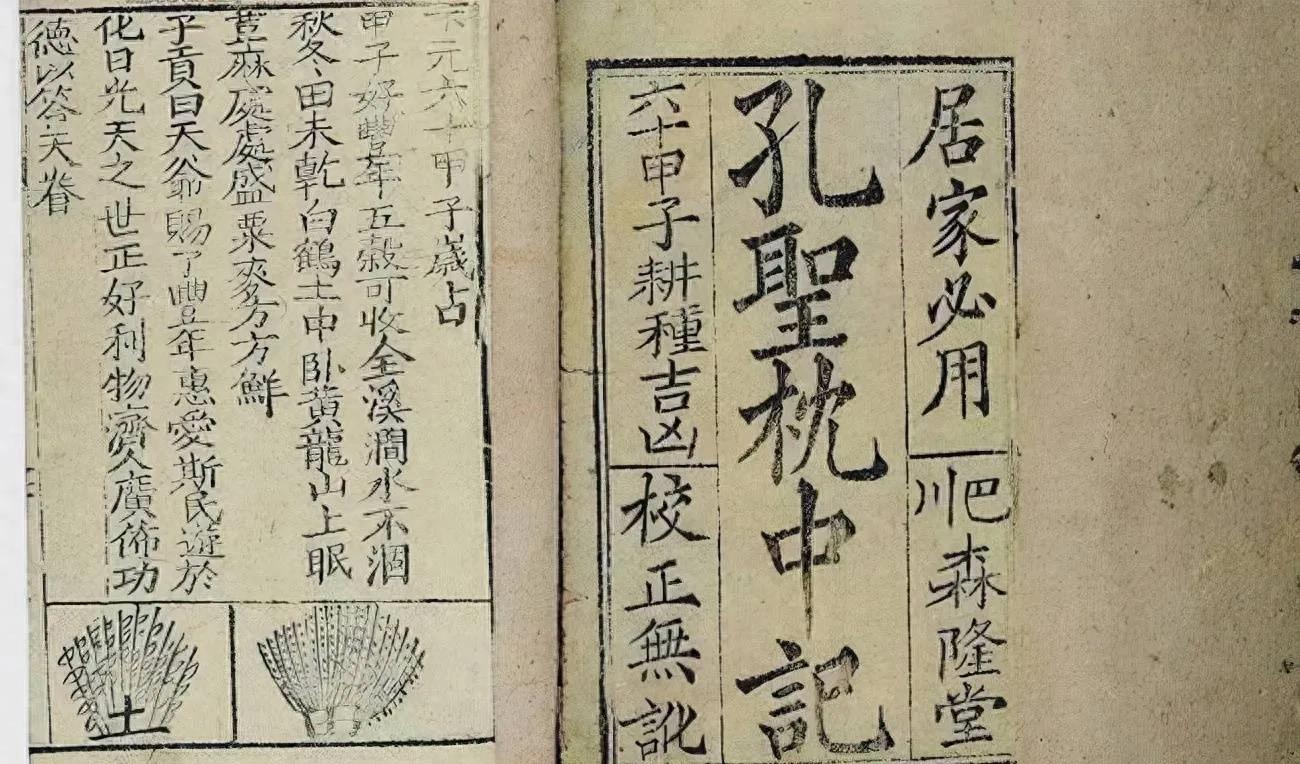 居家必用
巴川森隆堂
孔聖枕中記
六十甲子耕種吉凶
校正無訛
下元六十甲子歲占
甲子好豐年五穀可收全溪澗水不涸
秋冬田未乾白鶴土中臥黃龍山上眠
荳麻處處盛粟麥方方鮮
子貢曰天爺賜了豐年惠愛斯民遊於
化日光天之世正好利物濟人廣佈功
德以答天眷
土